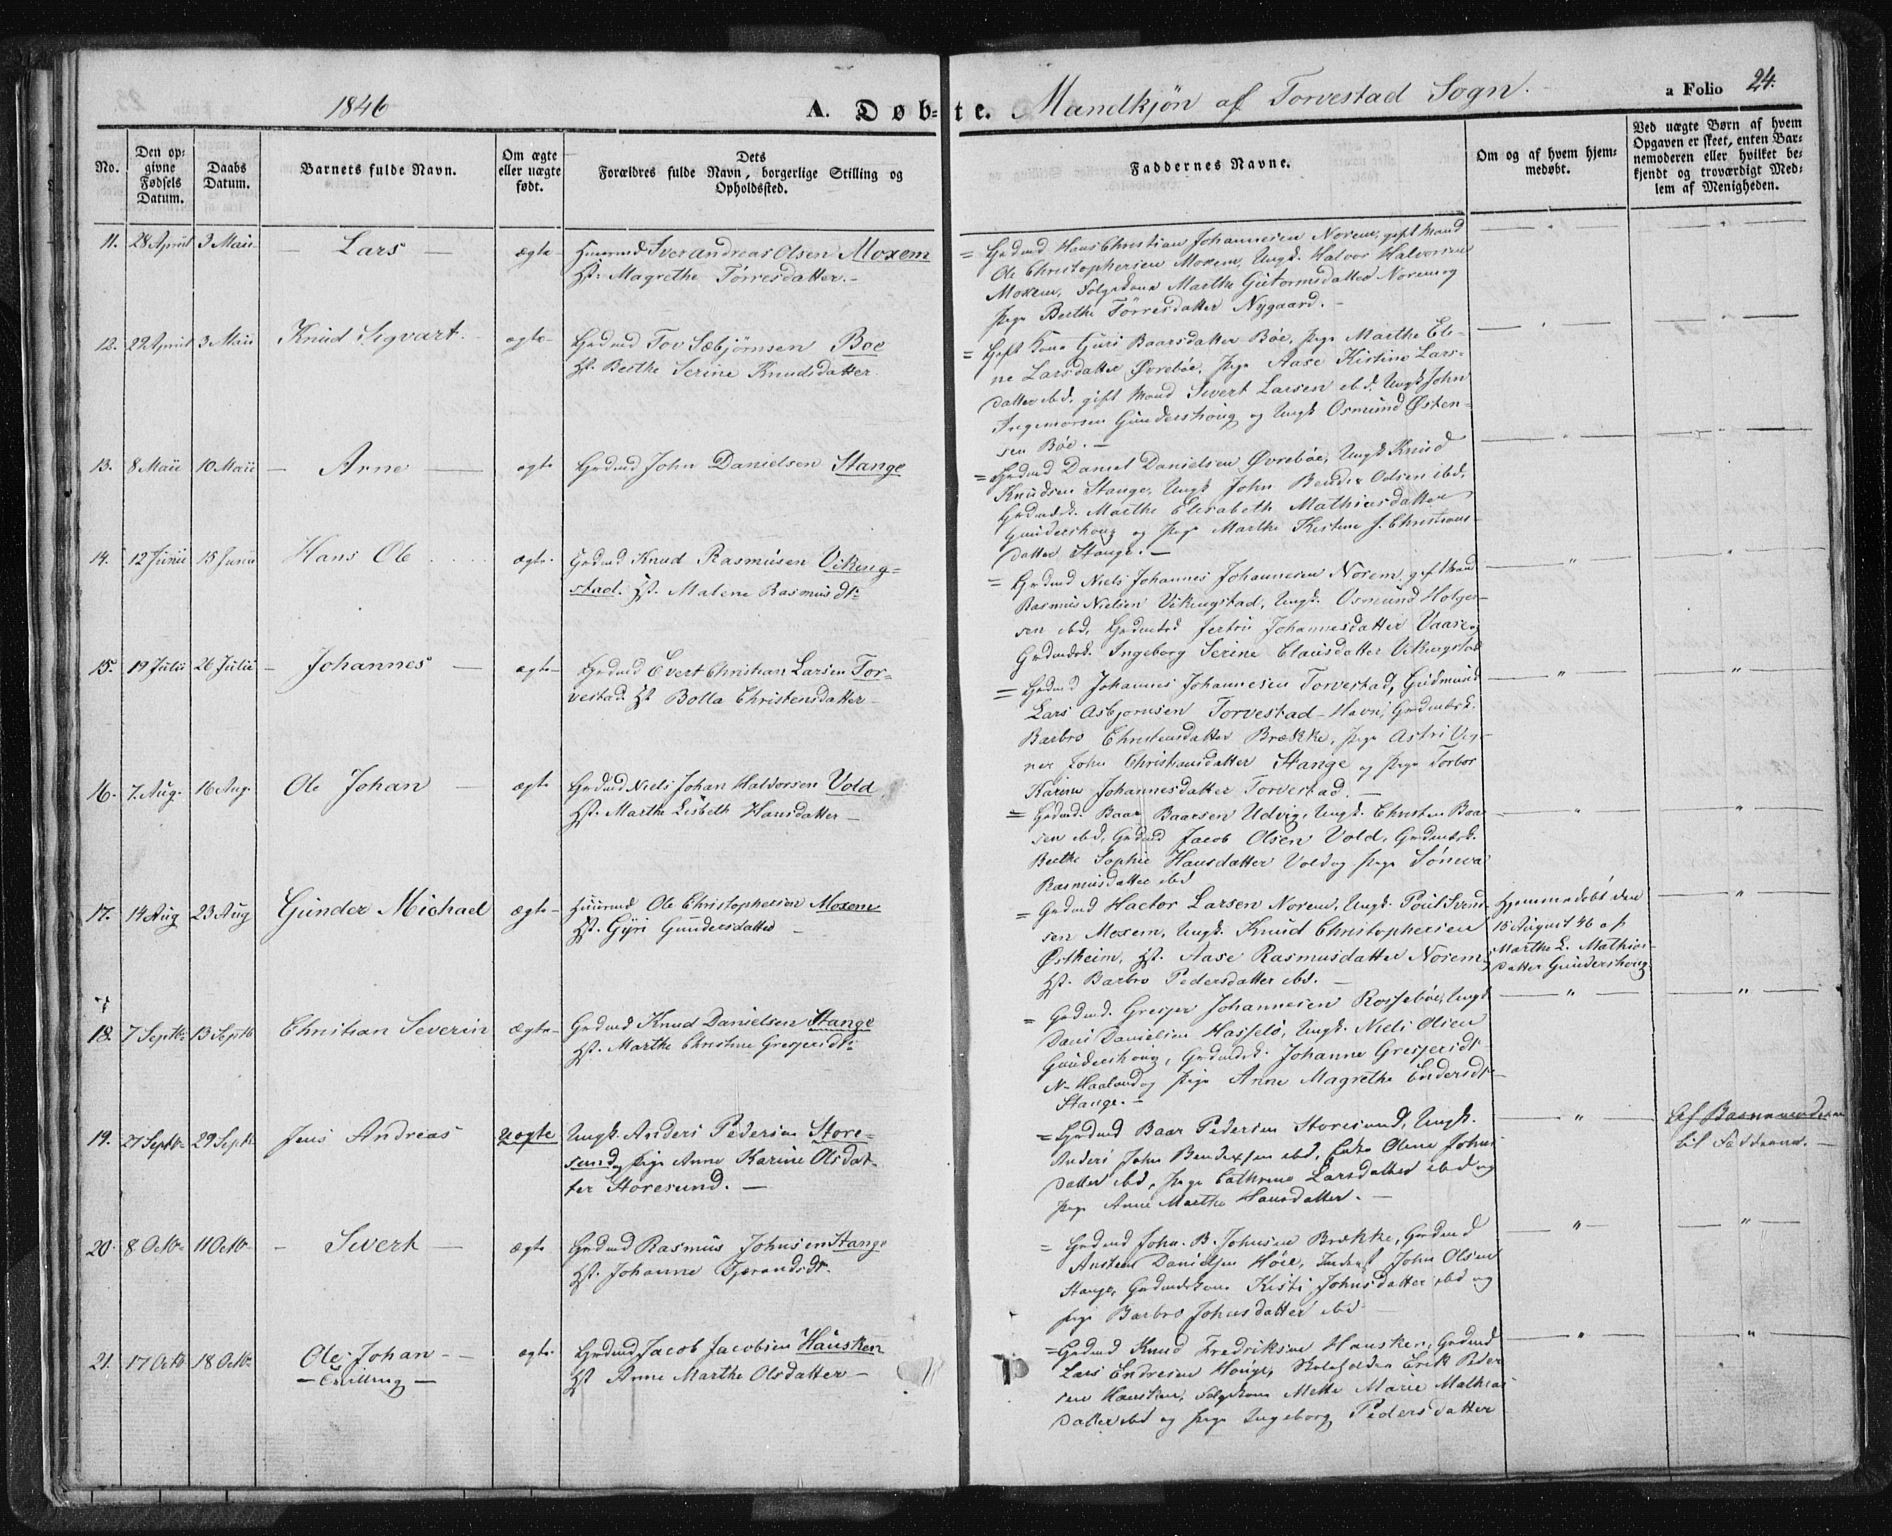 1846
A. Døb=te. Mandkjøn af Torvestad Sogn. a Folio 24.
No.
Den op=
givne
Fødsels
Datum.
Daabs
Datum.
Barnets fulde Navn.
Om ægte
eller uægte
født.
Dets
Forældres fulde Navn, borgerlige Stilling og
Opholdssted.
Faddernes Navne.
Om og af hvem hjem=
medøbt.
Ved uægte Børn af hvem
Opgaven er skeet, enten Bar=
nemoderen eller hvilket be=
kjendt og troværdigt Med=
lem af Menigheden.
11. 28 April 3 Maii — Lars — ægte Huusmd Iver Andreas Olsen Moxem
H. Magrethe Tørresdatter. —
= Grdmd Hans Christian Johannesen Norem, gift Mand
Ole Christophersen Moxem, Ungk. Halvor Halvorsen
Moxem, Folgekone Marthe Guttormsdatter Norem og
Pige Berthe Tørresdatter Nygaard. —
12. 22 April 3 Maii Knud Sigvart. ægte Grdmd Tov Sæbjørnsen Boe
H. Berthe Serine Knudsdatter
= Gift Kone Guri Baarsdatter Bøe, Pige Marthe Ele-
ne Larsdatter Øvrebøe, Pige Aase Kistine Lars-
datter ibd, gift Mand Sivert Larsen ibd. Ungk. John
Ingemorsen Gunderhoug og Ungk. Osmund Østen-
sen Bøe. —
13. 8 Maii 10 Maii — Arne — ægte Grdmd John Danielsen Stange
= Grdmd Daniel Danielsen Øvrebøe, Ungk Knud
Knudsen Stange, Ungk John Bendix Olsen ibd,
Grdmdsk. Marthe Elisabeth Mathiesdatter
Gundershoug og Pige Marthe Kistine J. Christians-
datter Stange. —
14. 12 Junii 15 Junii Hans Ole ægte Grdmd Knud Rasmusen Viking-
stad. H. Malene Rasmusdtr
= Grdmd Niels Johannes Johannesen Norem, gift Mand
Rasmus Nielsen Vikingstad, Ungk. Osmund Holger-
sen ibd, Grdmdsk Jertru Johannesdatter Vaare og
Grdmdsk. Ingeborg Serine Clausdatter Vikingstad
15. 19 Julii 26 Julii — Johannes — ægte Grdmd Evert Christian Larsen Tor-
vestad H. Bolla Christensdatter
= Grdmd Johannes Johannesen Torvestad, Grdmand
Lars Asbjørnsen Torvestad-Havn, Grdmdsk.
Barbro Christensdatter Brække, Pige Astri
Christiansdatter Stange og Pige Torbor
Karine Johannesdatter Torvestad. —
16. 7. Aug. 16 Aug. Ole Johan — ægte Grdmd Niels Johan Haldorsen Vold
H. Marthe Lisbeth Hansdatter —
= Grdmd. Baar Baarsen Udvig, Ungk. Christen Baar
sen ibd, Grdmd Jacob Olsen Vold, Grdmdsk.
Berthe Sophie Hansdatter Vold og Pige Søneva
Rasmusdatter ibd
17. 14 Aug 23 Aug Gunder Michael ægte — Huusmd Ole Christophersen Moxem
H. Gyri Gundersdatter —
= Grdmd Hactor Larsen Norem, Ungk. Poul Svend
sen Moxem, Ungk. Knud Christophersen
Østheim, H. Aase Rasmusdatter Norem
H. Barbro Pedersdatter ibd. —
Hjemmedøbt den
15 August 46 af
Marthe E. Mathias-
datter Gundershoug
18. 7 Septbr 13 Septb Christian Severin ægte — Grdmd Knud Danielsen Stange
H. Marthe Christine Grespersdtr
= Grdmd. Gresper Johannesen Rossebøe, Ungk
Daniel Danielsen Hasselø, Ungk. Niels Olsen
Gundershoug, Grdmdsk. Johanne Grespersdtr
N-Haaland og Pige Anne Magrethe Endersdtr
Stange. —
19. 27 Septbr 29 Septbr Jens Andreas uægte Ungk. Anders Pedersen Store-
sund og Pige Anne Karine Olsdat-
ter Storesund. —
= Grdmd Baar Pedersen Storesund, Ungk.
Anders John Bendixsen ibd, Enke Olene Johns-
datter ibd, Pige Cathrine Larsdatter ibd og
Pige Anne Marthe Hansdatter. —
Af Barnemoderen
til Fadderne. —
20. 8 Octbr 11 Octbr — Sivert — ægte Grdmd Rasmus Johnsen Stange
H. Johanne Tjerandsdtr.
= Grdmd John. B. Johnsen Brække, Grdmd
Austen Danielsen Høie, Inderst John Olsen
Stange, Grdmdskone Kisti Johnsdatter ibd og
Pige Barbro Johnsdatter ibd —
21. 17 Octb 18 Octbr Ole Johan —
— Tvilling —
ægte Grdmd Jacob Jacobsen Hausken
H. Anne Marthe Olsdatter —
= Grdmd Knud Fredriksen Hausken, Grdmd
Lars Endresen Houge, Skoleholder Erik Peder
sen Hausken, Folgekone Mette Marie Mathias
datter ibd og Pige Ingeborg Pedersdatter